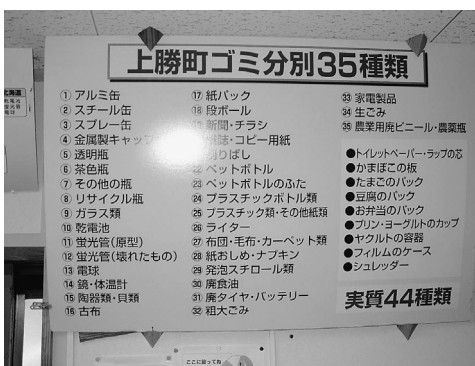 上勝町ゴミ分別35種類
① アルミ缶
② スチール缶
③ スプレー缶
④ 金属製キャップ
⑤ 透明瓶
⑥ 茶色瓶
⑦ その他の瓶
⑧ リサイクル瓶
⑨ ガラス類
⑩ 乾電池
⑪ 蛍光管(原型)
⑫ 蛍光管(壊れたもの)
⑬ 電球
⑭ 鏡・体温計
⑮ 陶器類・貝類
⑯ 古布
⑰ 紙パック
⑱ 段ボール
新聞・チラシ
雑誌・コピー用紙
割りばし
ペットボトル
㉓ ペットボトルのふた
㉔ プラスチックボトル類
㉕ プラスチック類・その他紙類
㉖ ライター
㉗ 布団・毛布・カーペット類
㉘ 紙おしめ・ナプキン
㉙ 発泡スチロール類
㉚ 廃食油
㉛ 廃タイヤ・バッテリー
㉜ 粗大ごみ
㉝ 家電製品
㉞ 生ごみ
㉟ 農業用廃ビニール・農薬瓶
●トイレットペーパー・ラップの芯
●かまぼこの板
●たまごのパック
●豆腐のパック
●お弁当のパック
●プリン・ヨーグルトのカップ
●ヤクルトの容器
●フィルムのケース
●シュレッダー
実質44種類